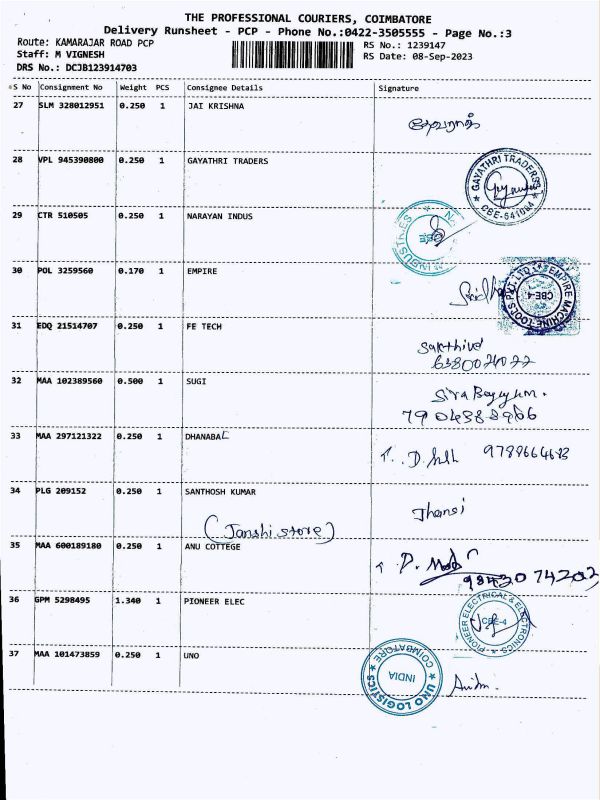 THE PROFESSIONAL COURIERS, COIMBATORE
Delivery Runsheet - PCP - Phone No.:0422-3505555 - Page No.:3
Route: KAMARAJAR ROAD PCP
RS No.: 1239147
Staff: M VIGNESH
RS Date: 08-Sep-2023
DRS No.: DCJB123914703
S No Consignment No Weight PCS Consignee Details Signature
27 SLM 328012951 0.250 1 JAI KRISHNA
28 VPL 945390800 0.250 1 GAYATHRI TRADERS
GAYATHRI TRADERS
29 CTR 510505 0.250 1 NARAYAN INDUS
INDUSTRIES
30 POL 3259560 0.170 1 EMPIRE
EMPIRE MACHINE TOOLS PVT. LTD. CBE-4
31 EDQ 21514707 0.250 1 FE TECH
Sakthivel
32 MAA 102389560 0.500 1 SUGI
33 MAA 297121322 0.250 1 DHANABAL
34 PLG 209152 0.250 1 SANTHOSH KUMAR
Jhansi
(Janshi store)
35 MAA 600189180 0.250 1 ANU COTTEGE
36 GPM 5298495 1.340 1 PIONEER ELEC
PIONEER ELECTRICAL & ELECTRONICS CBE-4
37 MAA 101473859 0.250 1 UNO
UNO LOGISTICS COIMBATORE INDIA